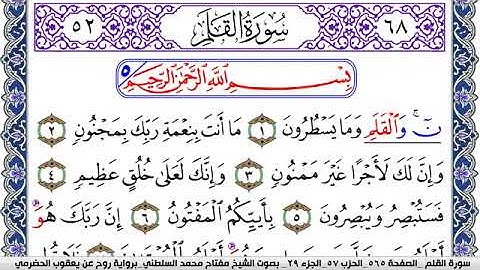 ٥٢ سُورَةُ القَلَمِ ٦٨
بِسْمِ اللَّهِ الرَّحْمَٰنِ الرَّحِيمِ
نٓ ۚ وَالْقَلَمِ وَمَا يَسْطُرُونَ ١ مَا أَنتَ بِنِعْمَةِ رَبِّكَ بِمَجْنُونٍ ٢
وَإِنَّ لَكَ لَأَجْرًا غَيْرَ مَمْنُونٍ ٣ وَإِنَّكَ لَعَلَىٰ خُلُقٍ عَظِيمٍ ٤
فَسَتُبْصِرُ وَيُبْصِرُونَ ٥ بِأَييِّكُمُ الْمَفْتُونُ ٦ إِنَّ رَبَّكَ هُوَ
سورة القلم _ الصفحة ٥٦٥ _ الحزب ٥٧ _ الجزء ٢٩ _ بصوت الشيخ مفتاح محمد السلطني _ برواية روح عن يعقوب الحضرمي